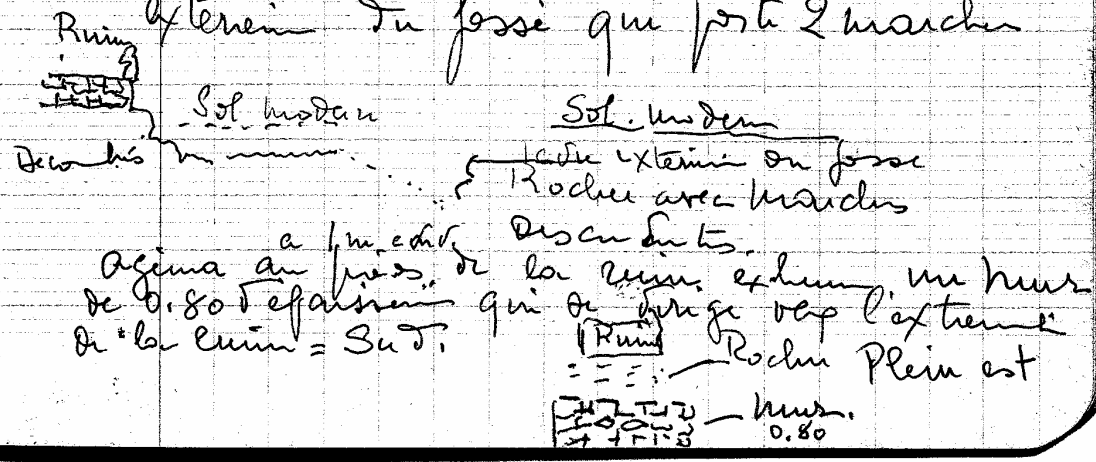 extérieur du fossé qui porte 2 marches
Ruine
Sol modern
Sol. modern
Décombres
extérieur du fosse
Rocher avec Marches
Descendantes.
a 1 m. env.
au pied de la ruine exhume un mur
de 0.80 d'épaisseur qui se dirige vers l'extremité
de la ruine = Sud.
Ruine
Rocher Plein est
mur.
0.80